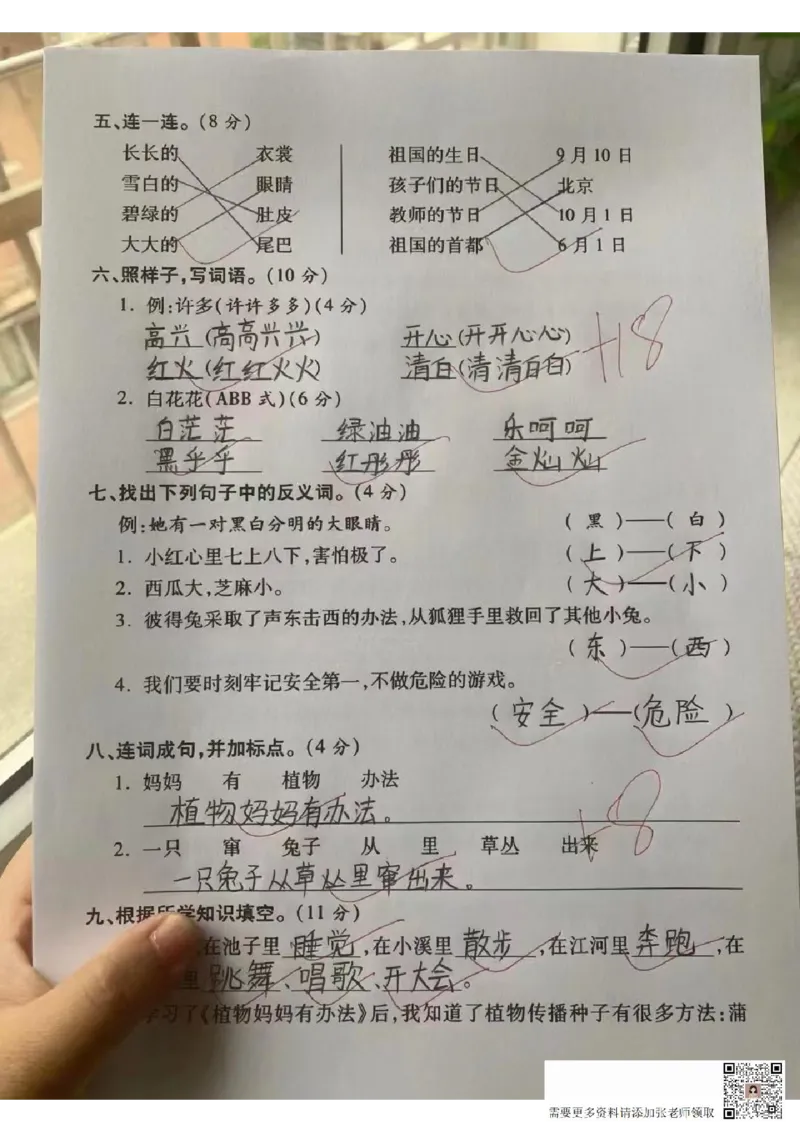 五、连一连。(8 分)
长长的 衣裳 祖国的生日 9 月 10 日
雪白的 眼睛 孩子们的节日 北京
碧绿的 肚皮 教师的节日 10 月 1 日
大大的 尾巴 祖国的首都 6 月 1 日
六、照样子,写词语。(10 分)
1. 例:许多(许许多多)(4 分)
高兴(高高兴兴) 开心(开开心心)
红火(红红火火) 清白(清清白白)
+18
2. 白花花(ABB 式)(6 分)
白茫茫 绿油油 乐呵呵
黑乎乎 红彤彤 金灿灿
七、找出下列句子中的反义词。(4 分)
例:她有一对黑白分明的大眼睛。 (黑)—(白)
1. 小红心里七上八下,害怕极了。 (上)—(下)
2. 西瓜大,芝麻小。 (大)—(小)
3. 彼得兔采取了声东击西的办法,从狐狸手里救回了其他小兔。
(东)—(西)
4. 我们要时刻牢记安全第一,不做危险的游戏。
(安全)—(危险)
八、连词成句,并加标点。(4 分)
1. 妈妈 有 植物 办法
植物妈妈有办法。
+8
2. 一只 窜 兔子 从 里 草丛 出来
一只兔子从草丛里窜出来。
九、根据所学知识填空。(11 分)
,在池子里睡觉,在小溪里散步,在江河里奔跑,在
里跳舞、唱歌、开大会。
学习了《植物妈妈有办法》后,我知道了植物传播种子有很多方法:蒲
需要更多资料请添加张老师领取